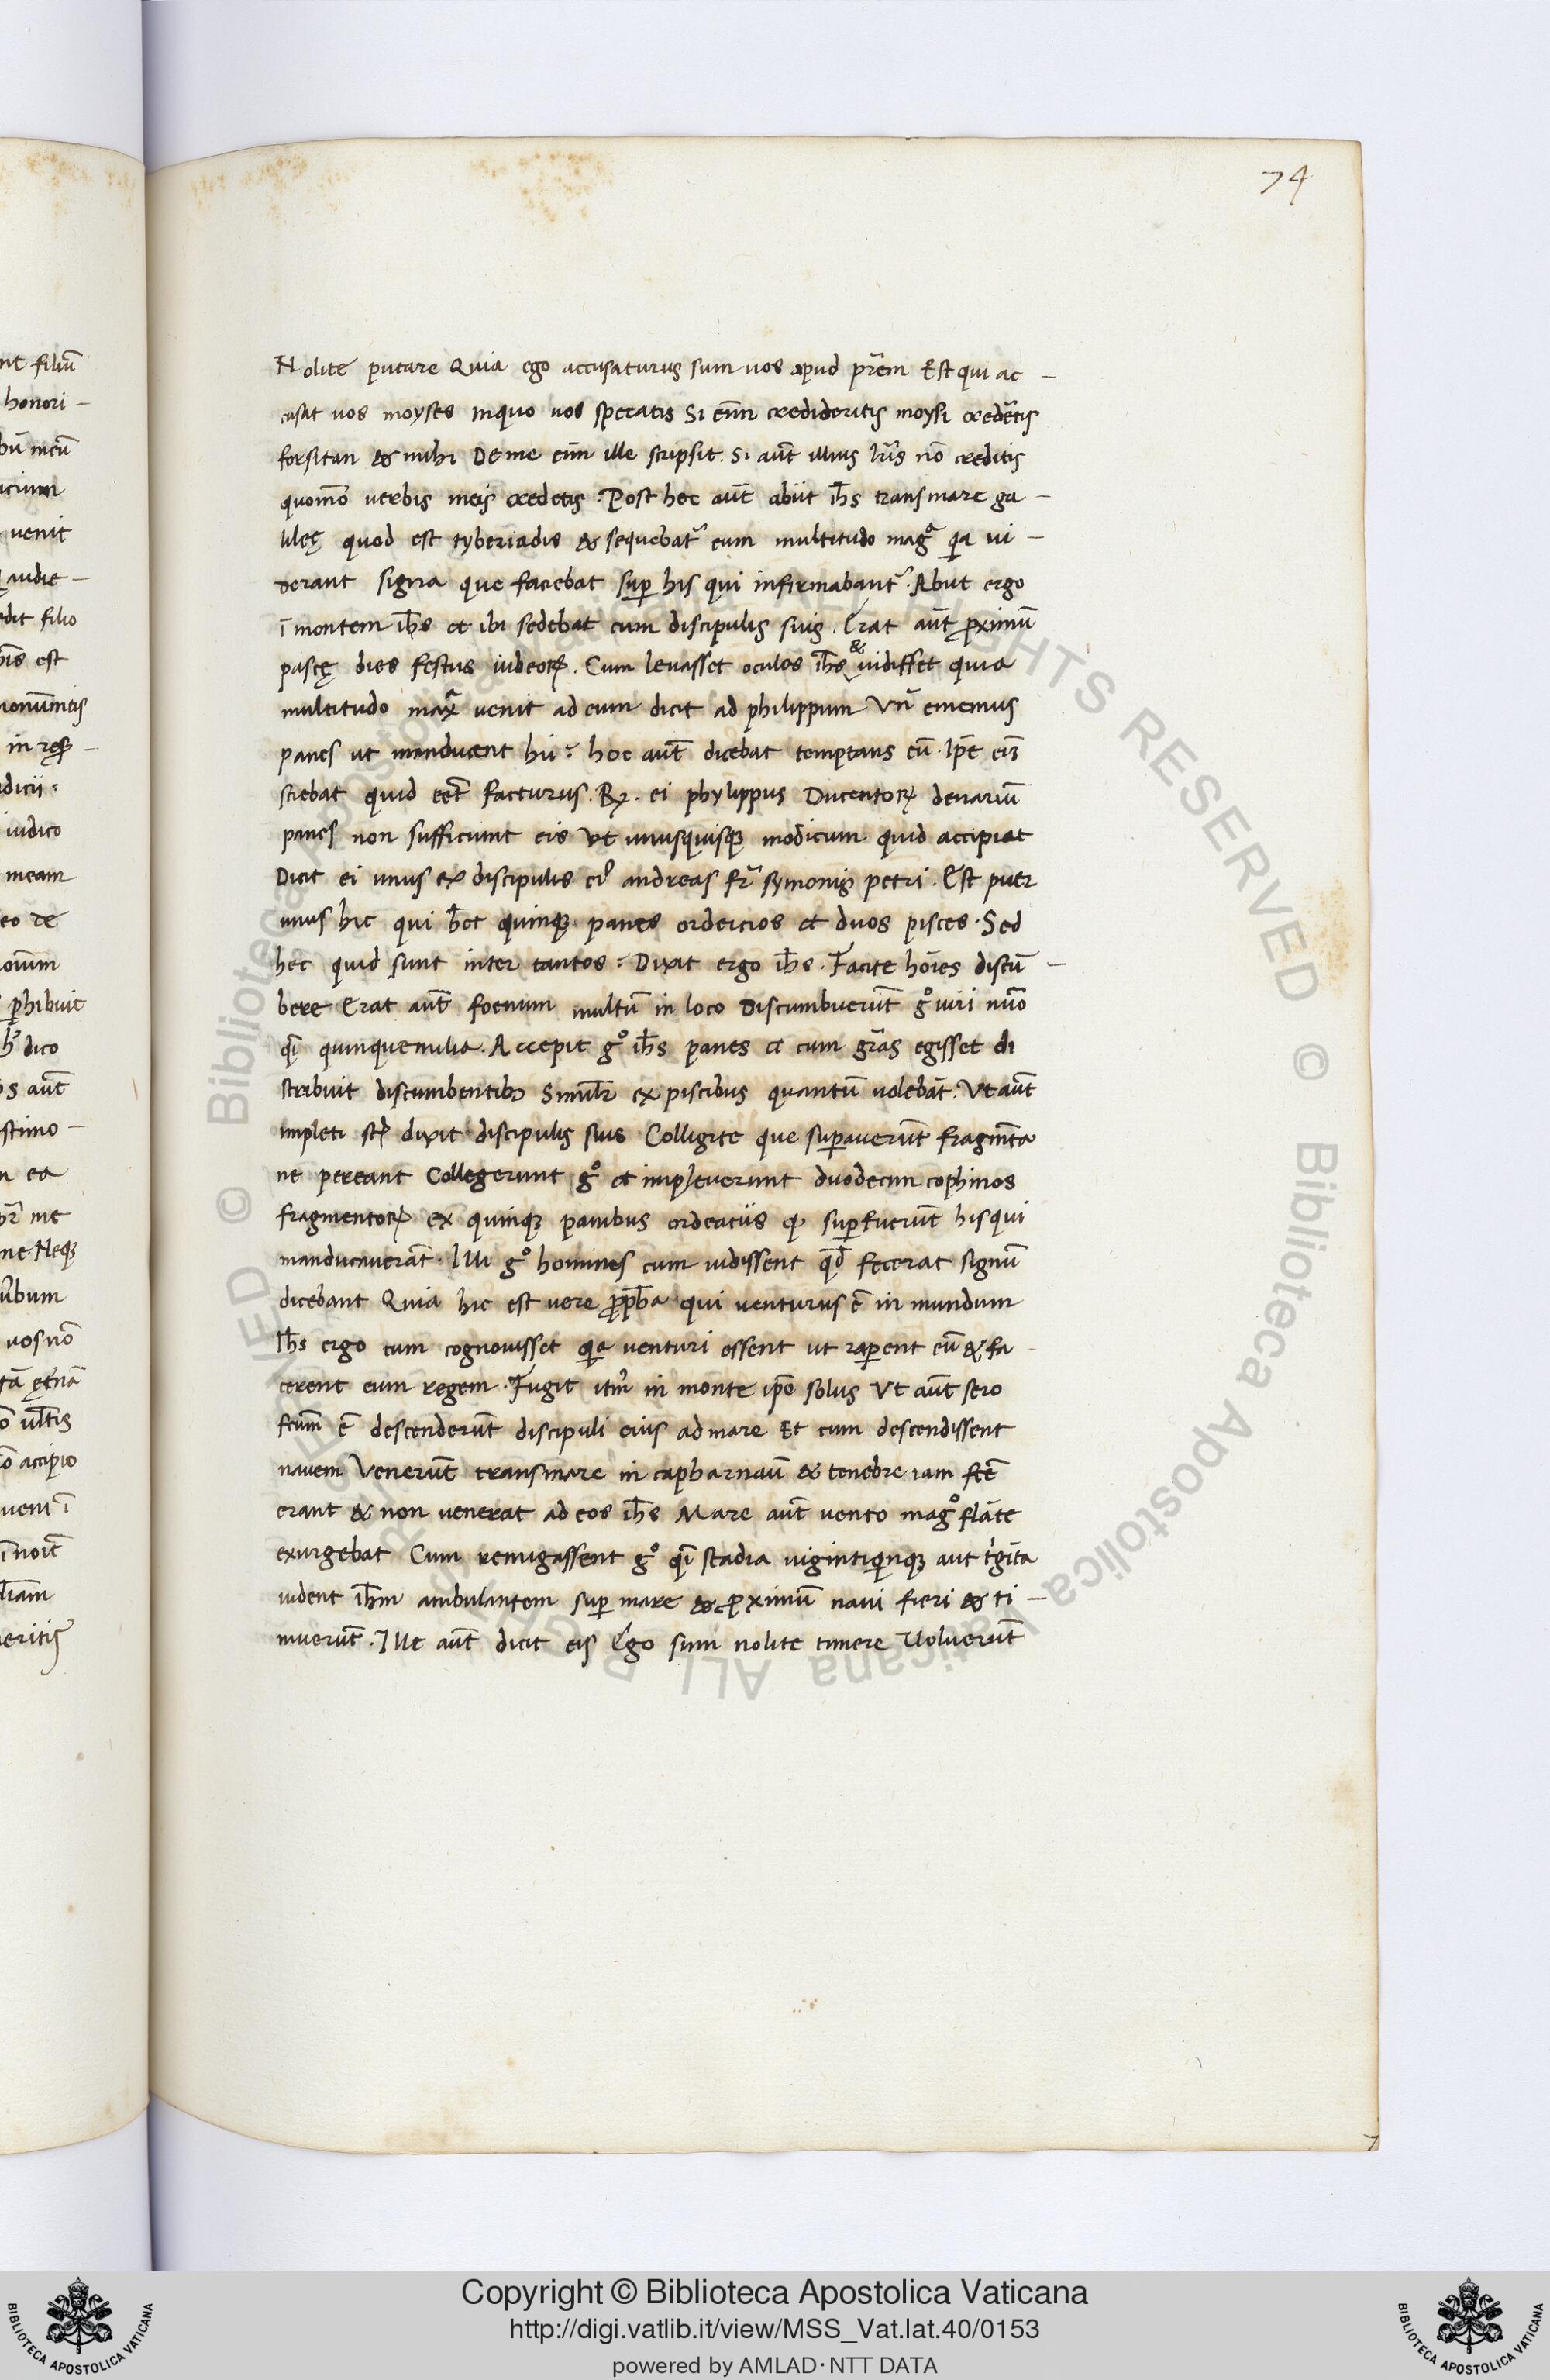 74
Nolite putare Quia ego accusaturus sum uos apud pr̃em Est qui ac –
cusat uos moyses inquo uos speratis Si enĩm credideritis moysi credẽtis
forsitan & mihi De me enĩm ille scripsit. Si aũt illius lr̃is nõ creditis
quomõ uerbis meis credetis. Post hec aũt abiit ih̃s trans mare ga –
lileę quod est tyberiadis & sequebat᷑ eum multitudo magͣ qͥa ui –
derant signa que faciebat suꝑ his qui infirmabant᷑. Abiit ergo
ĩ montem ih̃s et ibi sedebat cum discipulis suis. Erat aũt ꝓximũ
pascę dies festus iudeoꝝ. Cum leuasset oculos ih̃s & uidisset quia
multitudo maxͣ uenit ad eum dicit ad philippum Vñ ememus
panes ut manducent hii? hoc aũt dicebat temptans eũ. Ip̃e eĩs
sciebat quid eẽt facturus. R⁊. ei phylippus Ducentoꝝ denariũ
panes non sufficiunt eis Vt unusquisqꝫ modicum quid accipiat
Dicit ei unus ex discipulis eiꝰ andreas fr̃ symonis petri. Est puer
unus hic qui h̃et quinqꝫ panes ordeicios et duos pisces. Sed
hec quid sunt inter tantos? Dixit ergo ih̃s. Facite hoĩes discũ –
bere Erat aũt foenum multũ in loco Discumbuerũt gͦ uiri nũo
q̃i quinque milia. Accepit gͦ ih̃s panes et cum gr̃as egisset di
stribuit discumbentibꝫ Similr̃ ex piscibus quantũ uolebãt. Vt aũt
impleti st̃ dixit discipulis suis Colligite que suꝑauerũt fragm̃ta
ne pereant Collegerunt gͦ et impleuerunt duodecim cophinos
fragmentoꝝ ex quinqꝫ panibus ordeaciis q̃ suꝑfuerũt his qui
manducauerãt. Illi gͦ homines cum uidissent qd̃ fecerat signũ
dicebant Quia hic est uere ꝓph̃a qui uenturus ẽ in mundum
Ih̃s ergo cum cognouisset qͥa uenturi essent ut raꝑent eũ & fa
cerent eum regem. Fugit itm̃ in monte ip̃e solus Vt aũt sero
fc̃um ẽ descenderũt discipuli eius ad mare Et cum descendissent
nauem Venerũt trans mare in capharnaũ & tenebre iam fc̃e
erant & non uenerat ad eos ih̃s Mare aũt uento magͦ flãte
exurgebat Cum remigassent gͦ q̃i stadia uigintiqͥnqꝫ aut tͥgĩta
uident ih̃m ambulantem suꝑ mare & ꝓximũ naui fieri & ti –
muerũt. Ille aũt dicit eis Ego sum nolite timere Uoluerũt
Copyright © Biblioteca Apostolica Vaticana
http://digi.vatlib.it/view/MSS_Vat.lat.40/0153
powered by AMLAD·NTT DATA